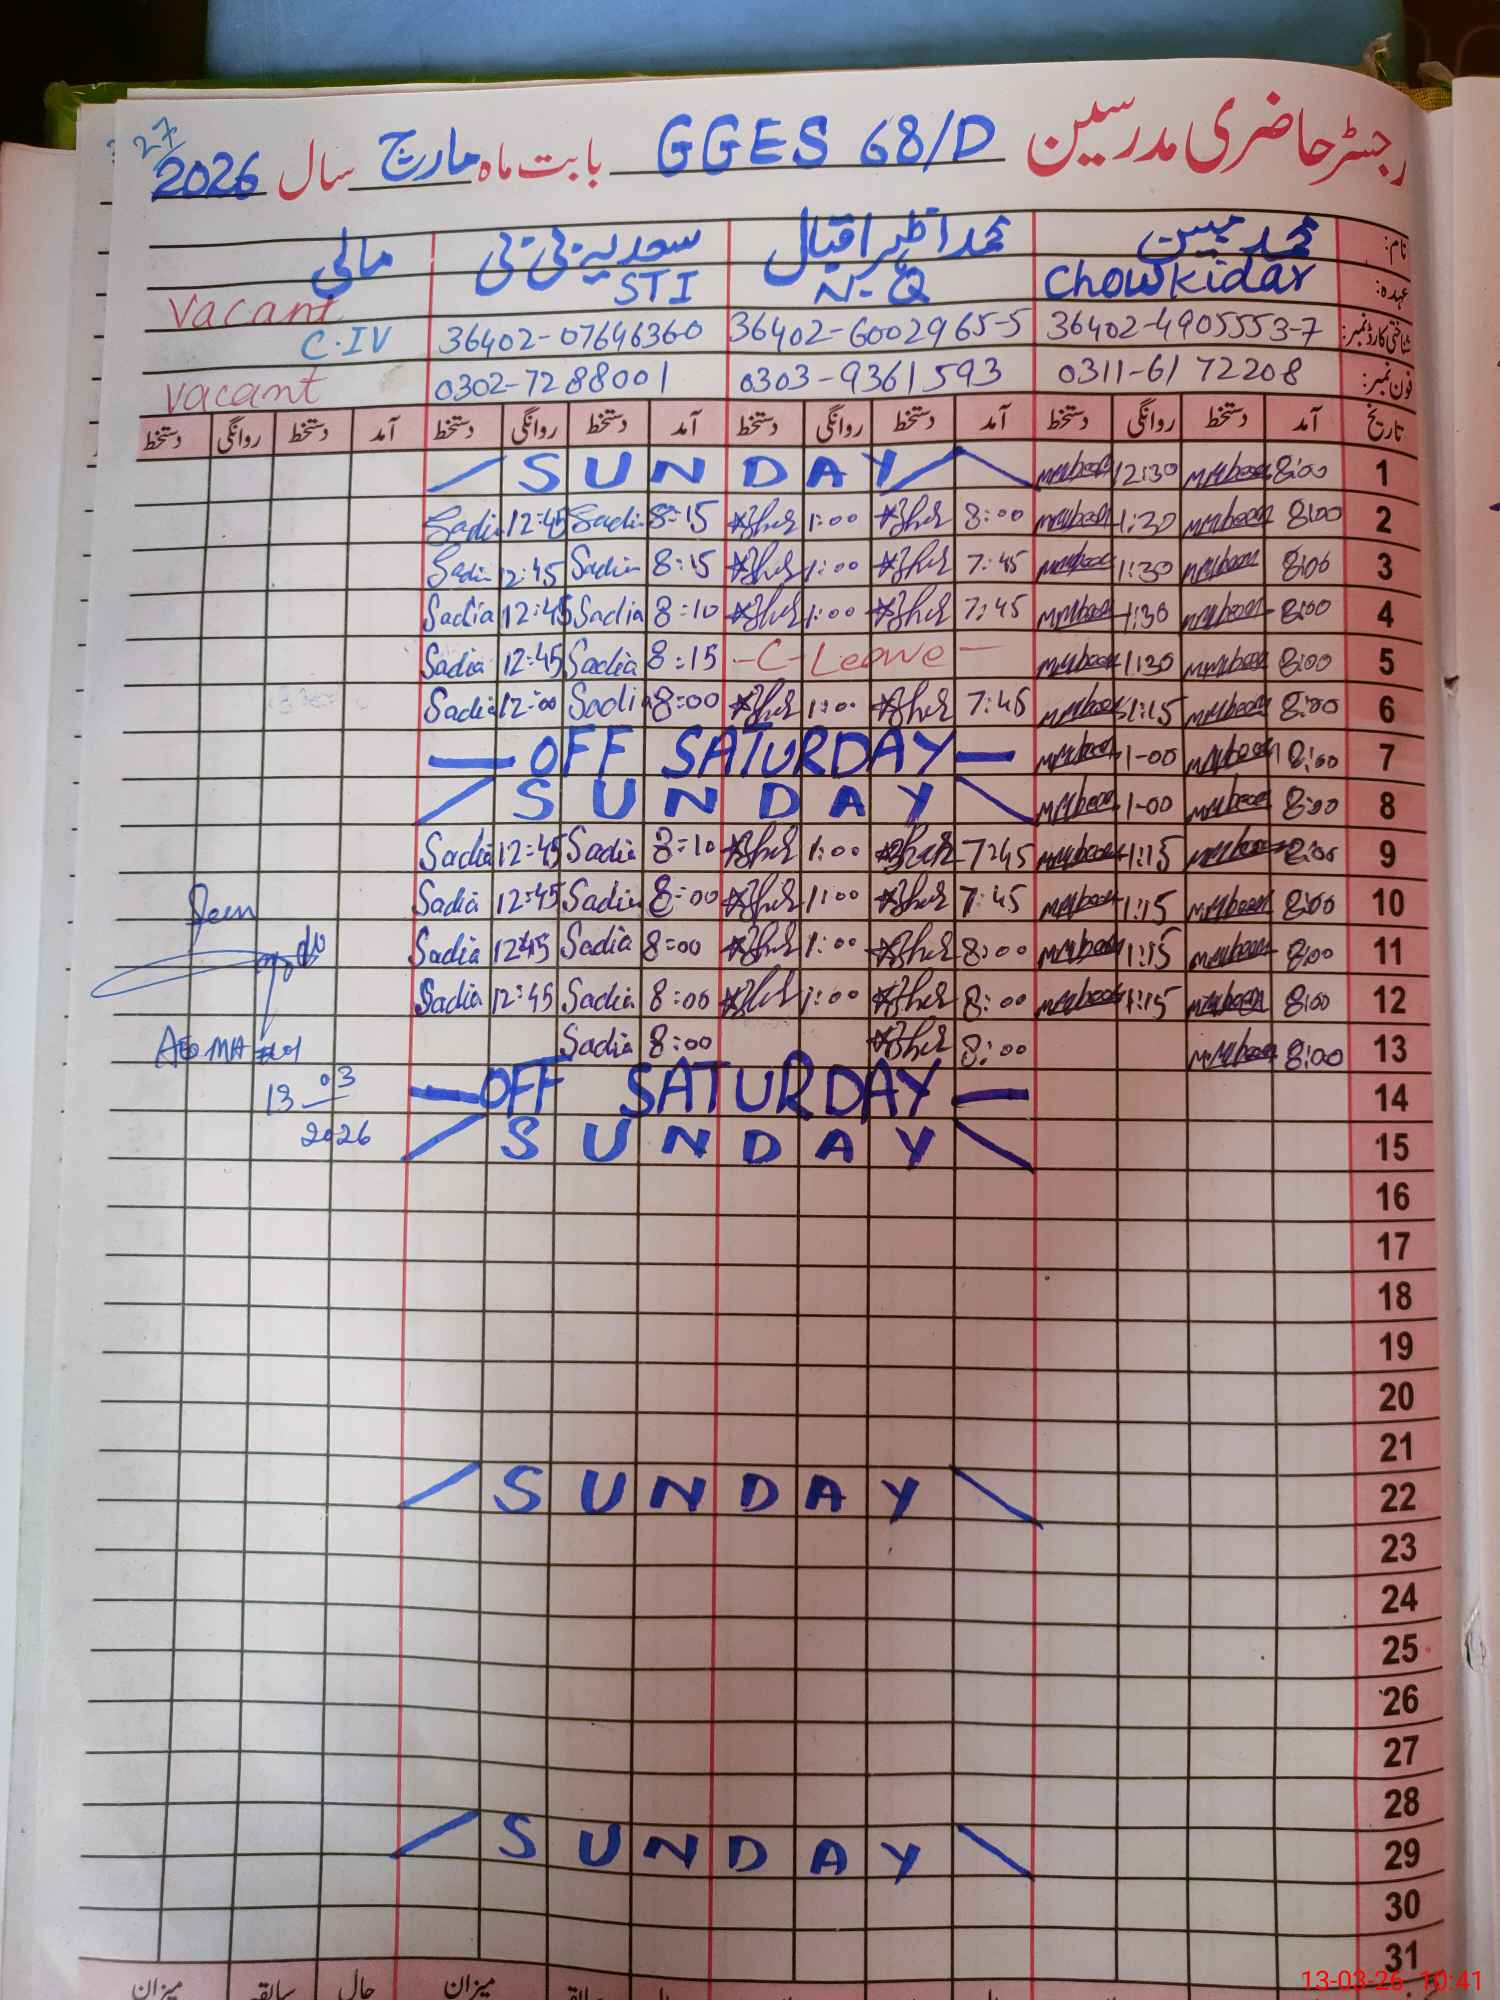 رجسٹر حاضری مدرسین GGES 68/D بابت ماہ مارچ سال 2026
27
نام: محمد مبین محمد اظہر اقبال سعدیہ بی بی مالی
عہدہ: Chowkidar N-Q STI Vacant
شناختی کارڈ نمبر: 36402-4905553-7 36402-6002965-5 36402-07646360 C.IV
فون نمبر: 0311-6172208 0303-9361593 0302-7288001 Vacant
تاریخ آمد دستخط روانگی دستخط آمد دستخط روانگی دستخط آمد دستخط روانگی دستخط آمد دستخط روانگی دستخط
1 8:00 12:30 SUNDAY
2 8:00 1:30 8:00 Azher 1:00 Azher 8:15 Sadia 12:45 Sadia
3 8:00 1:30 7:45 Azher 1:00 Azher 8:15 Sadia 12:45 Sadia
4 8:00 1:30 7:45 Azher 1:00 Azher 8:10 Sadia 12:45 Sadia
5 8:00 1:30 -C-Leave- 8:15 Sadia 12:45 Sadia
6 8:00 1:15 7:45 Azher 1:00 Azher 8:00 Sadia 12:00 Sadia
7 8:00 1-00 — OFF SATURDAY —
8 8:00 1-00 SUNDAY
9 8:00 1:15 7:45 Azher 1:00 Azher 8:10 Sadia 12:45 Sadia
10 8:00 1:15 7:45 Azher 1:00 Azher 8:00 Sadia 12:45 Sadia
11 8:00 1:15 8:00 Azher 1:00 Azher 8:00 Sadia 12:45 Sadia
12 8:00 1:15 8:00 Azher 1:00 Azher 8:00 Sadia 12:45 Sadia
13 8:00 8:00 Azher 8:00 Sadia
14 — OFF SATURDAY —
15 SUNDAY
Seen
13
03
2026
16
17
18
19
20
21
22 SUNDAY
23
24
25
26
27
28
29 SUNDAY
30
31
میزان حال سابقہ میزان
13-03-26 10:41